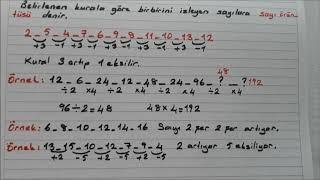 Belirlenen kurala göre birbirini izleyen sayılara sayı örün-
tüsü denir.
2-5-4-7-6-9-8-11-10-13-12
+3 -1 +3 -1 +3 -1 +3 -1 +3 -1
Kural 3 artıp 1 eksilir.
48
Örnek: 12-6-24-12-48-24-96-?-? 192
÷2 ×4 ÷2 ×4 ÷2 ×4 ÷2 ×4
96÷2=48 48×4=192
Örnek: 6-8-10-12-14-16 Sayı 2 şer 2 şer artıyor.
Örnek: 13-15-10-12-7-9-4 2 artıyor 5 eksiliyor.
+2 -5 +2 -5 +2 -5